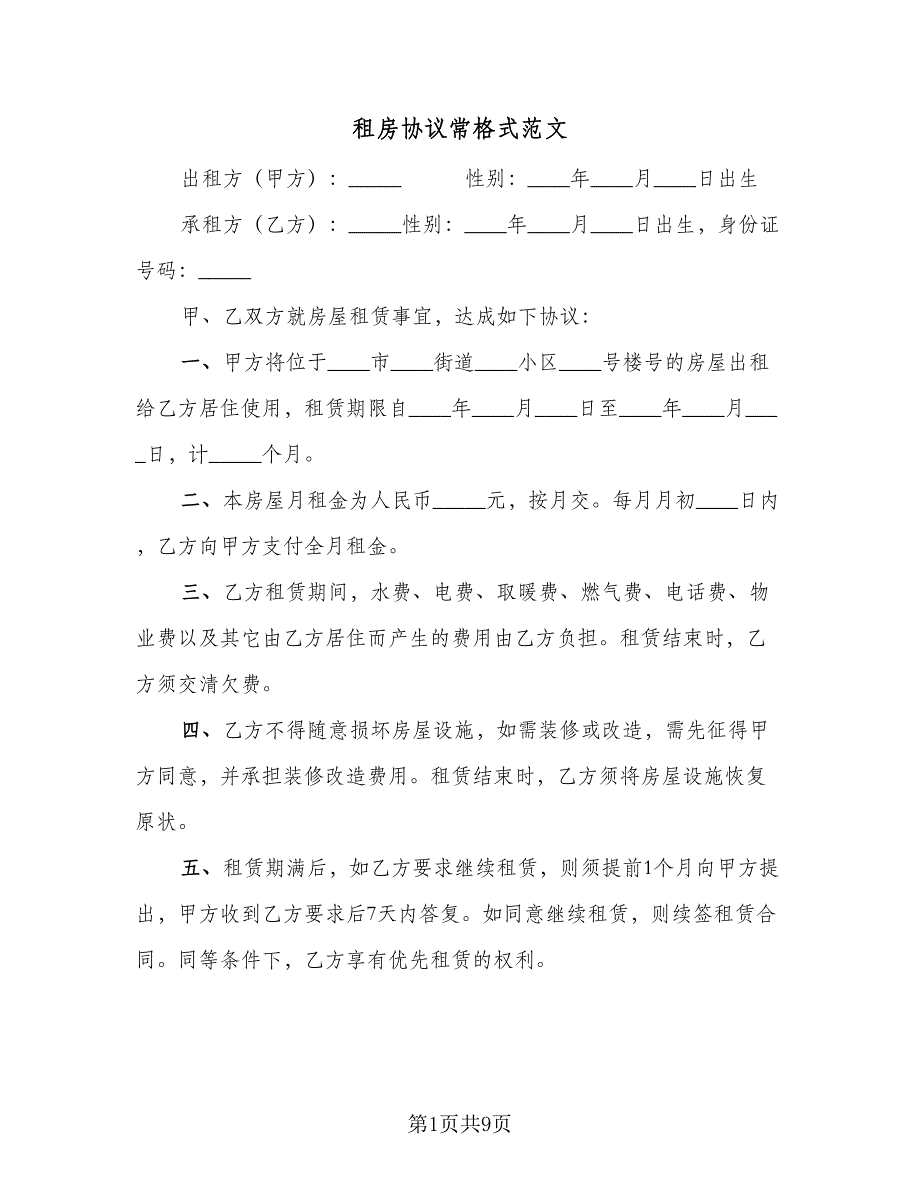 租房协议常格式范文
出租方（甲方）：_____ 性别：____年____月____日出生
承租方（乙方）：_____性别：____年____月____日出生，身份证
号码：_____
甲、乙双方就房屋租赁事宜，达成如下协议：
一、甲方将位于____市____街道____小区____号楼号的房屋出租
给乙方居住使用，租赁期限自____年____月____日至____年____月___
_日，计_____个月。
二、本房屋月租金为人民币_____元，按月交。每月月初____日内
，乙方向甲方支付全月租金。
三、乙方租赁期间，水费、电费、取暖费、燃气费、电话费、物
业费以及其它由乙方居住而产生的费用由乙方负担。租赁结束时，乙
方须交清欠费。
四、乙方不得随意损坏房屋设施，如需装修或改造，需先征得甲
方同意，并承担装修改造费用。租赁结束时，乙方须将房屋设施恢复
原状。
五、租赁期满后，如乙方要求继续租赁，则须提前1个月向甲方提
出，甲方收到乙方要求后7天内答复。如同意继续租赁，则续签租赁合
同。同等条件下，乙方享有优先租赁的权利。
第1页共9页